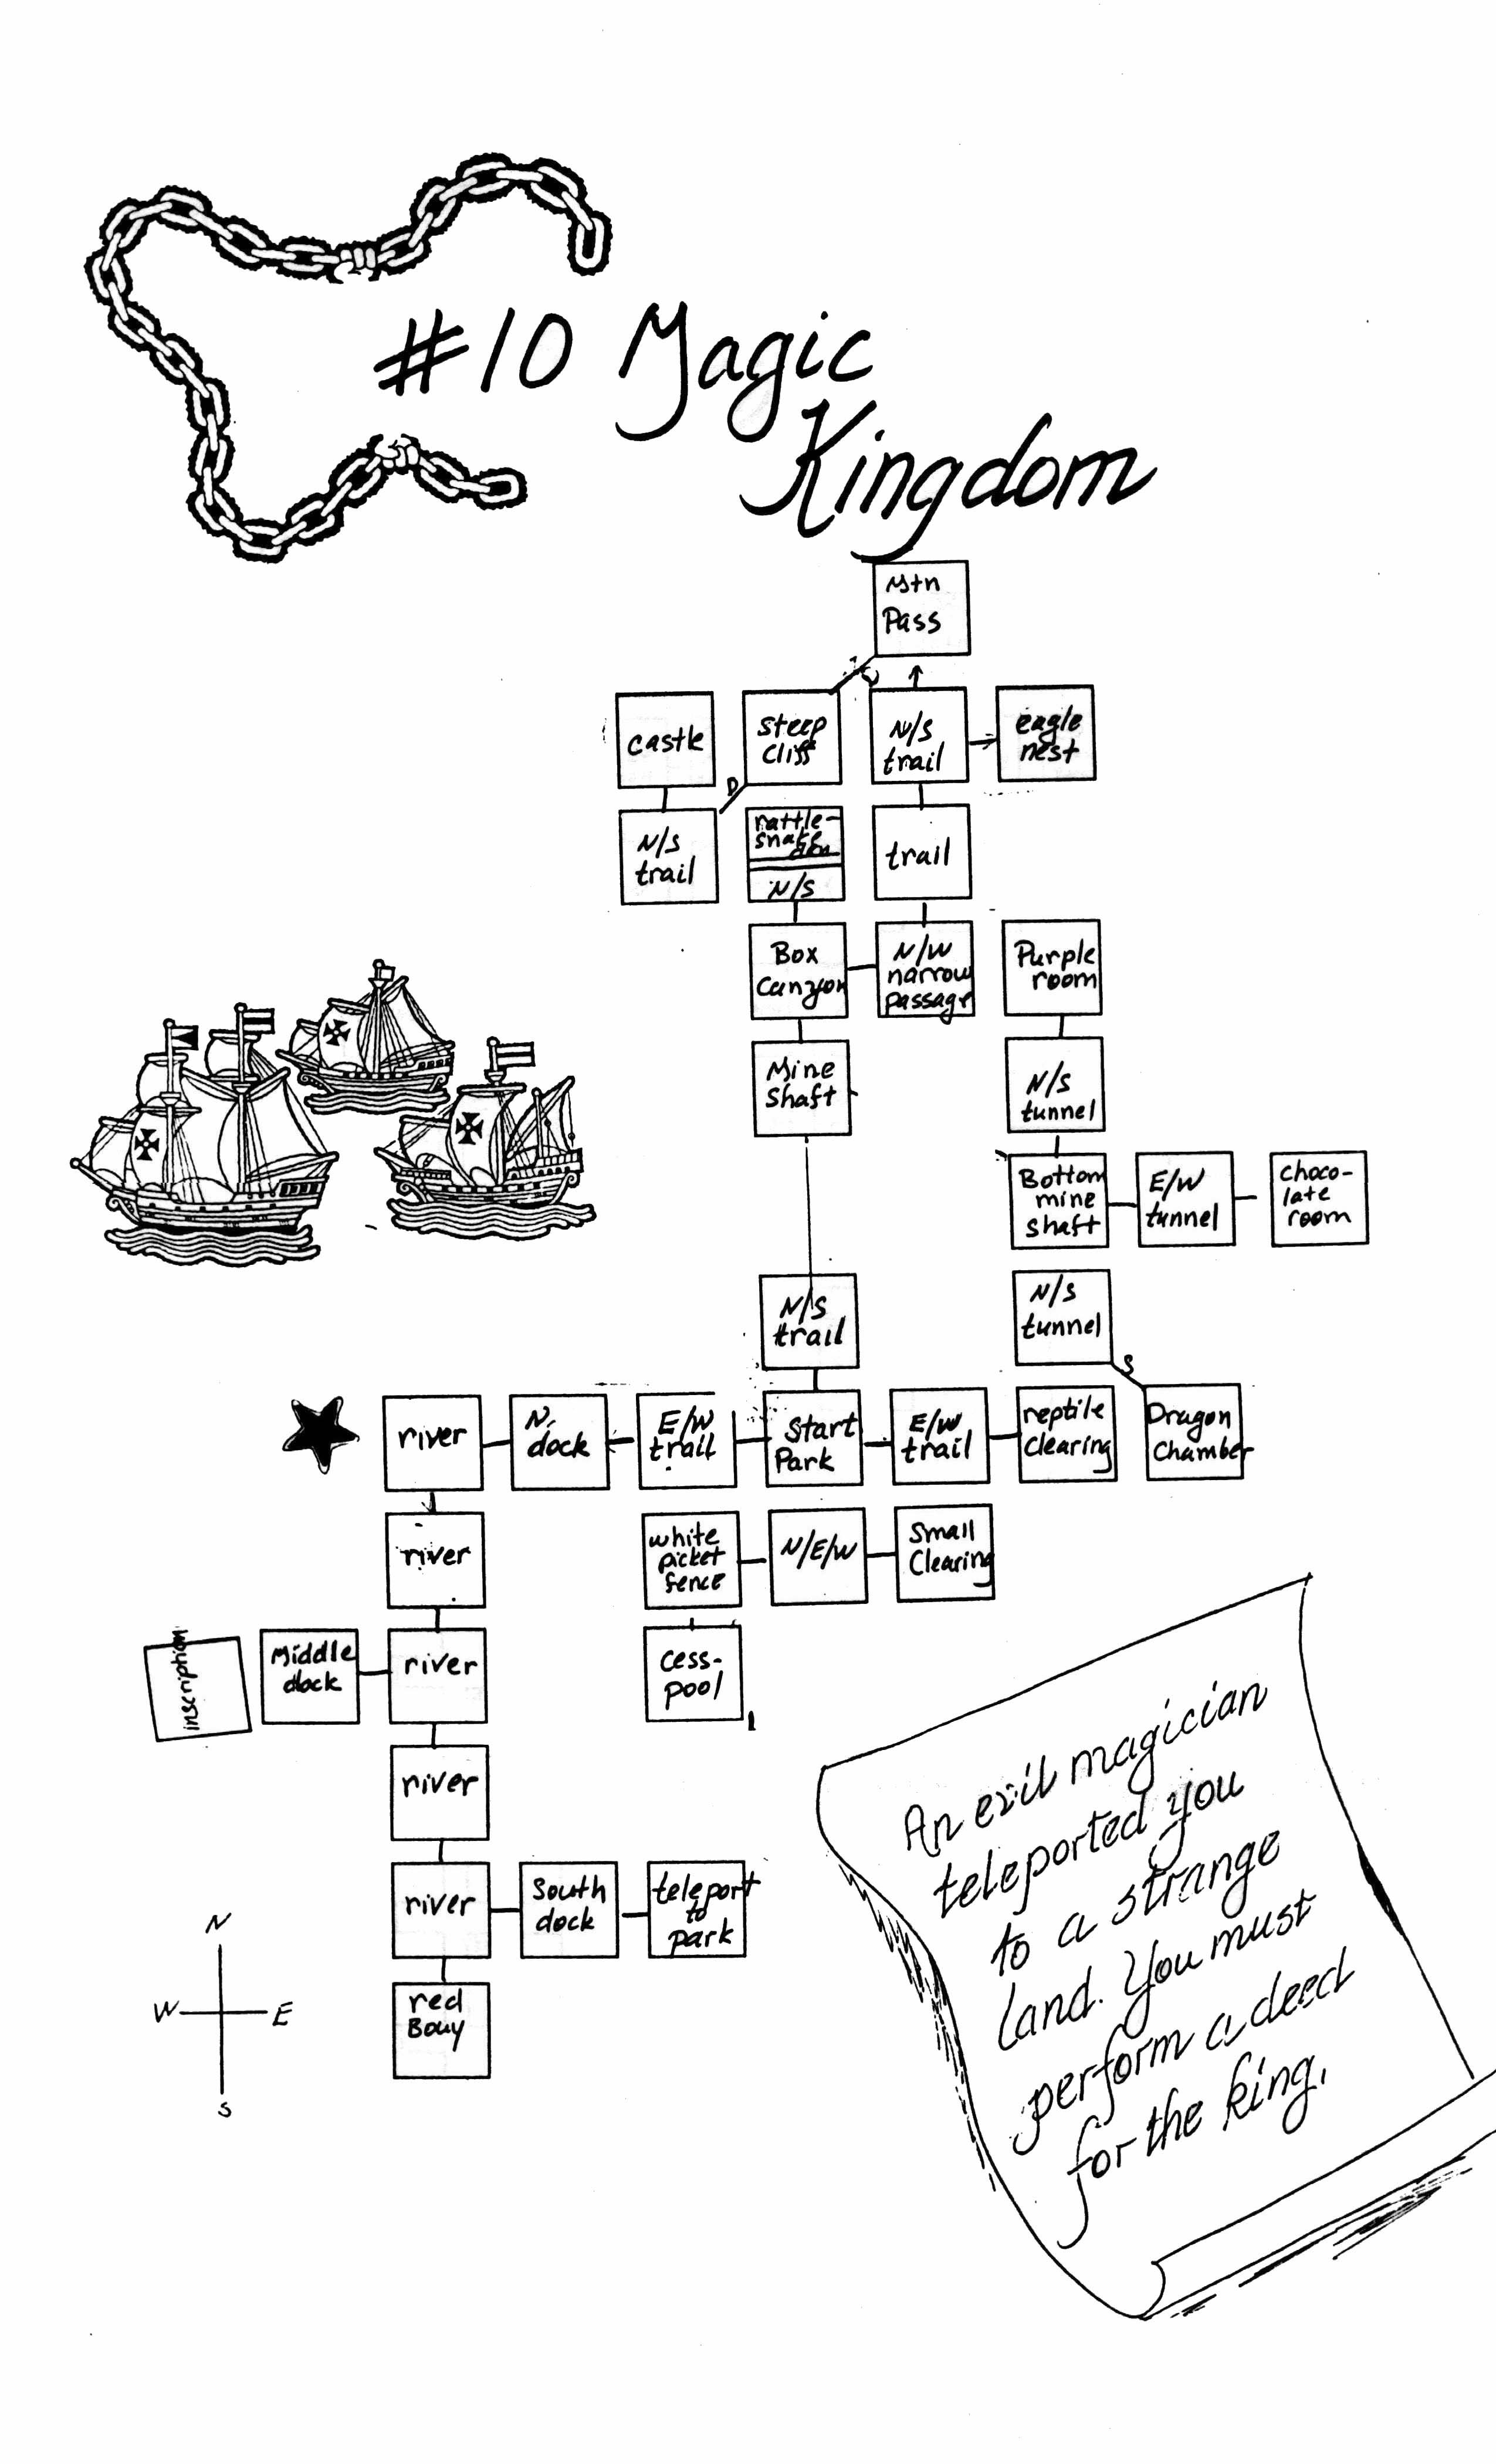 #10 Magic
Kingdom
Mtn
Pass
castle
steep
cliff
N/S
trail
eagle
nest
D
N/S
trail
rattle-
snake
den
N/S
trail
Box
Canyon
N/W
narrow
passage
Purple
room
Mine
Shaft
N/S
tunnel
Bottom
mine
shaft
E/W
tunnel
choco-
late
room
N/S
trail
N/S
tunnel
S
river
N.
dock
E/W
trail
Start
Park
E/W
trail
reptile
clearing
Dragon
Chamber
river
white
picket
fence
N/E/W
Small
Clearing
inscription
Middle
dock
river
cess-
pool
river
river
South
dock
teleport
to
park
red
Bouy
N
W
E
S
An evil magician
teleported you
to a strange
land. You must
perform a deed
for the king.